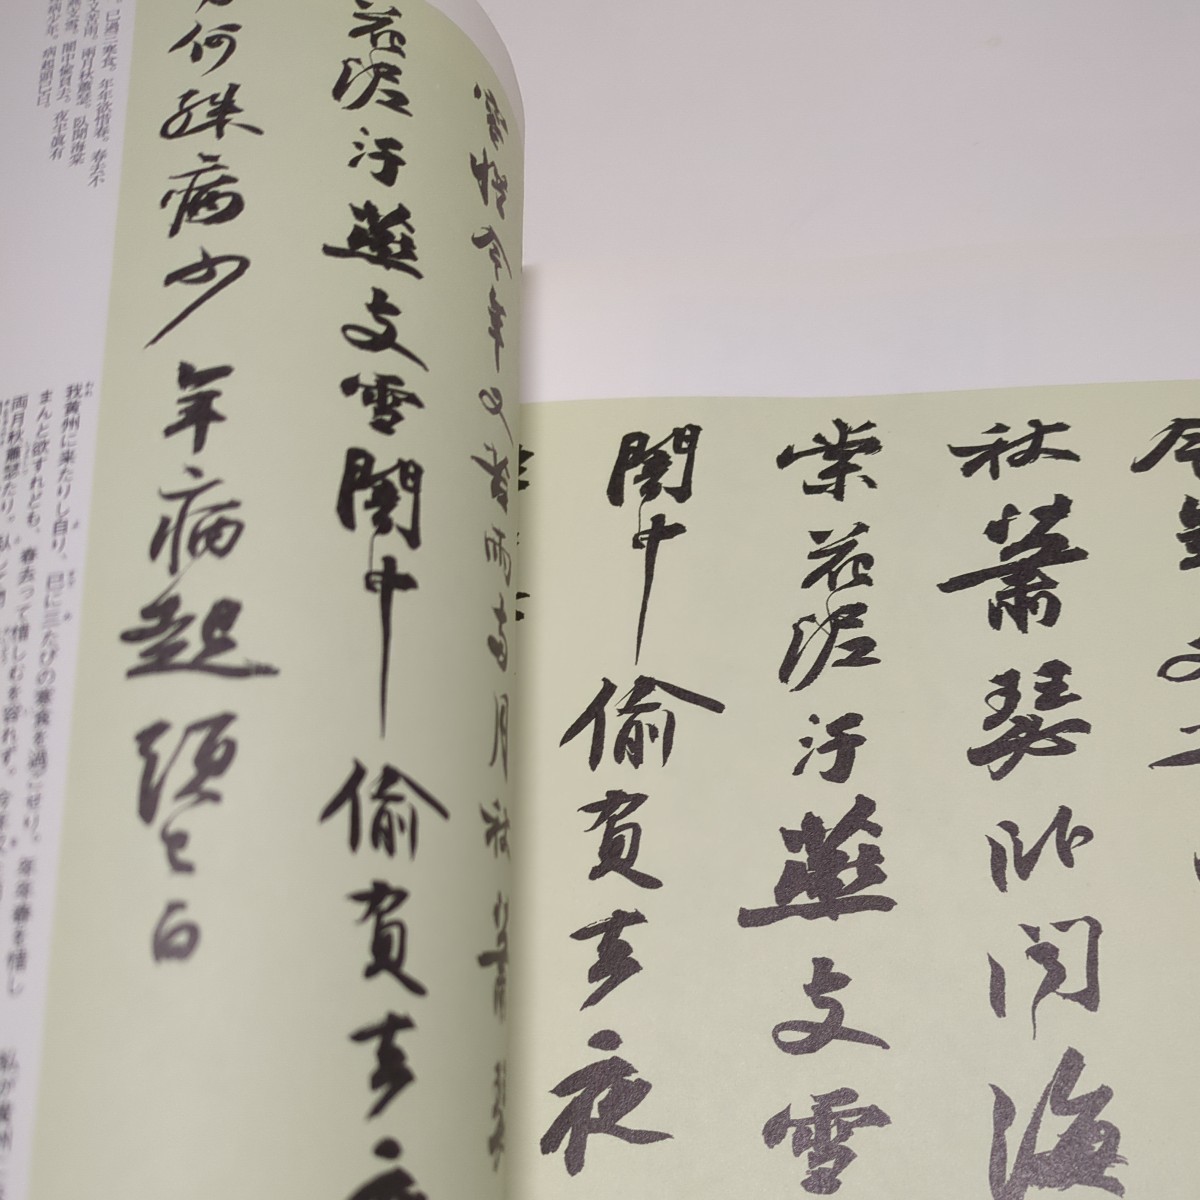 今年又
秋蕭瑟臥聞海
棠花泥汙燕支雪
闇中偷負去夜
容惜今年又苦雨兩月秋蕭瑟
花泥汙燕支雪闇中偷負去夜
何殊病少年病起頭已白
已過三寒食。年年欲惜春。春去不
又苦雨。兩月秋蕭瑟。臥聞海棠
燕支雪。闇中偷負去。夜半眞有
病少年。病起頭已白。
我黄州に来たりし自り、已に三たびの寒食を過ごせり。年年春を惜し
まんと欲すれども、春去って惜しむを容れず。今年又
両月秋蕭瑟たり。臥して聞
私が黄州